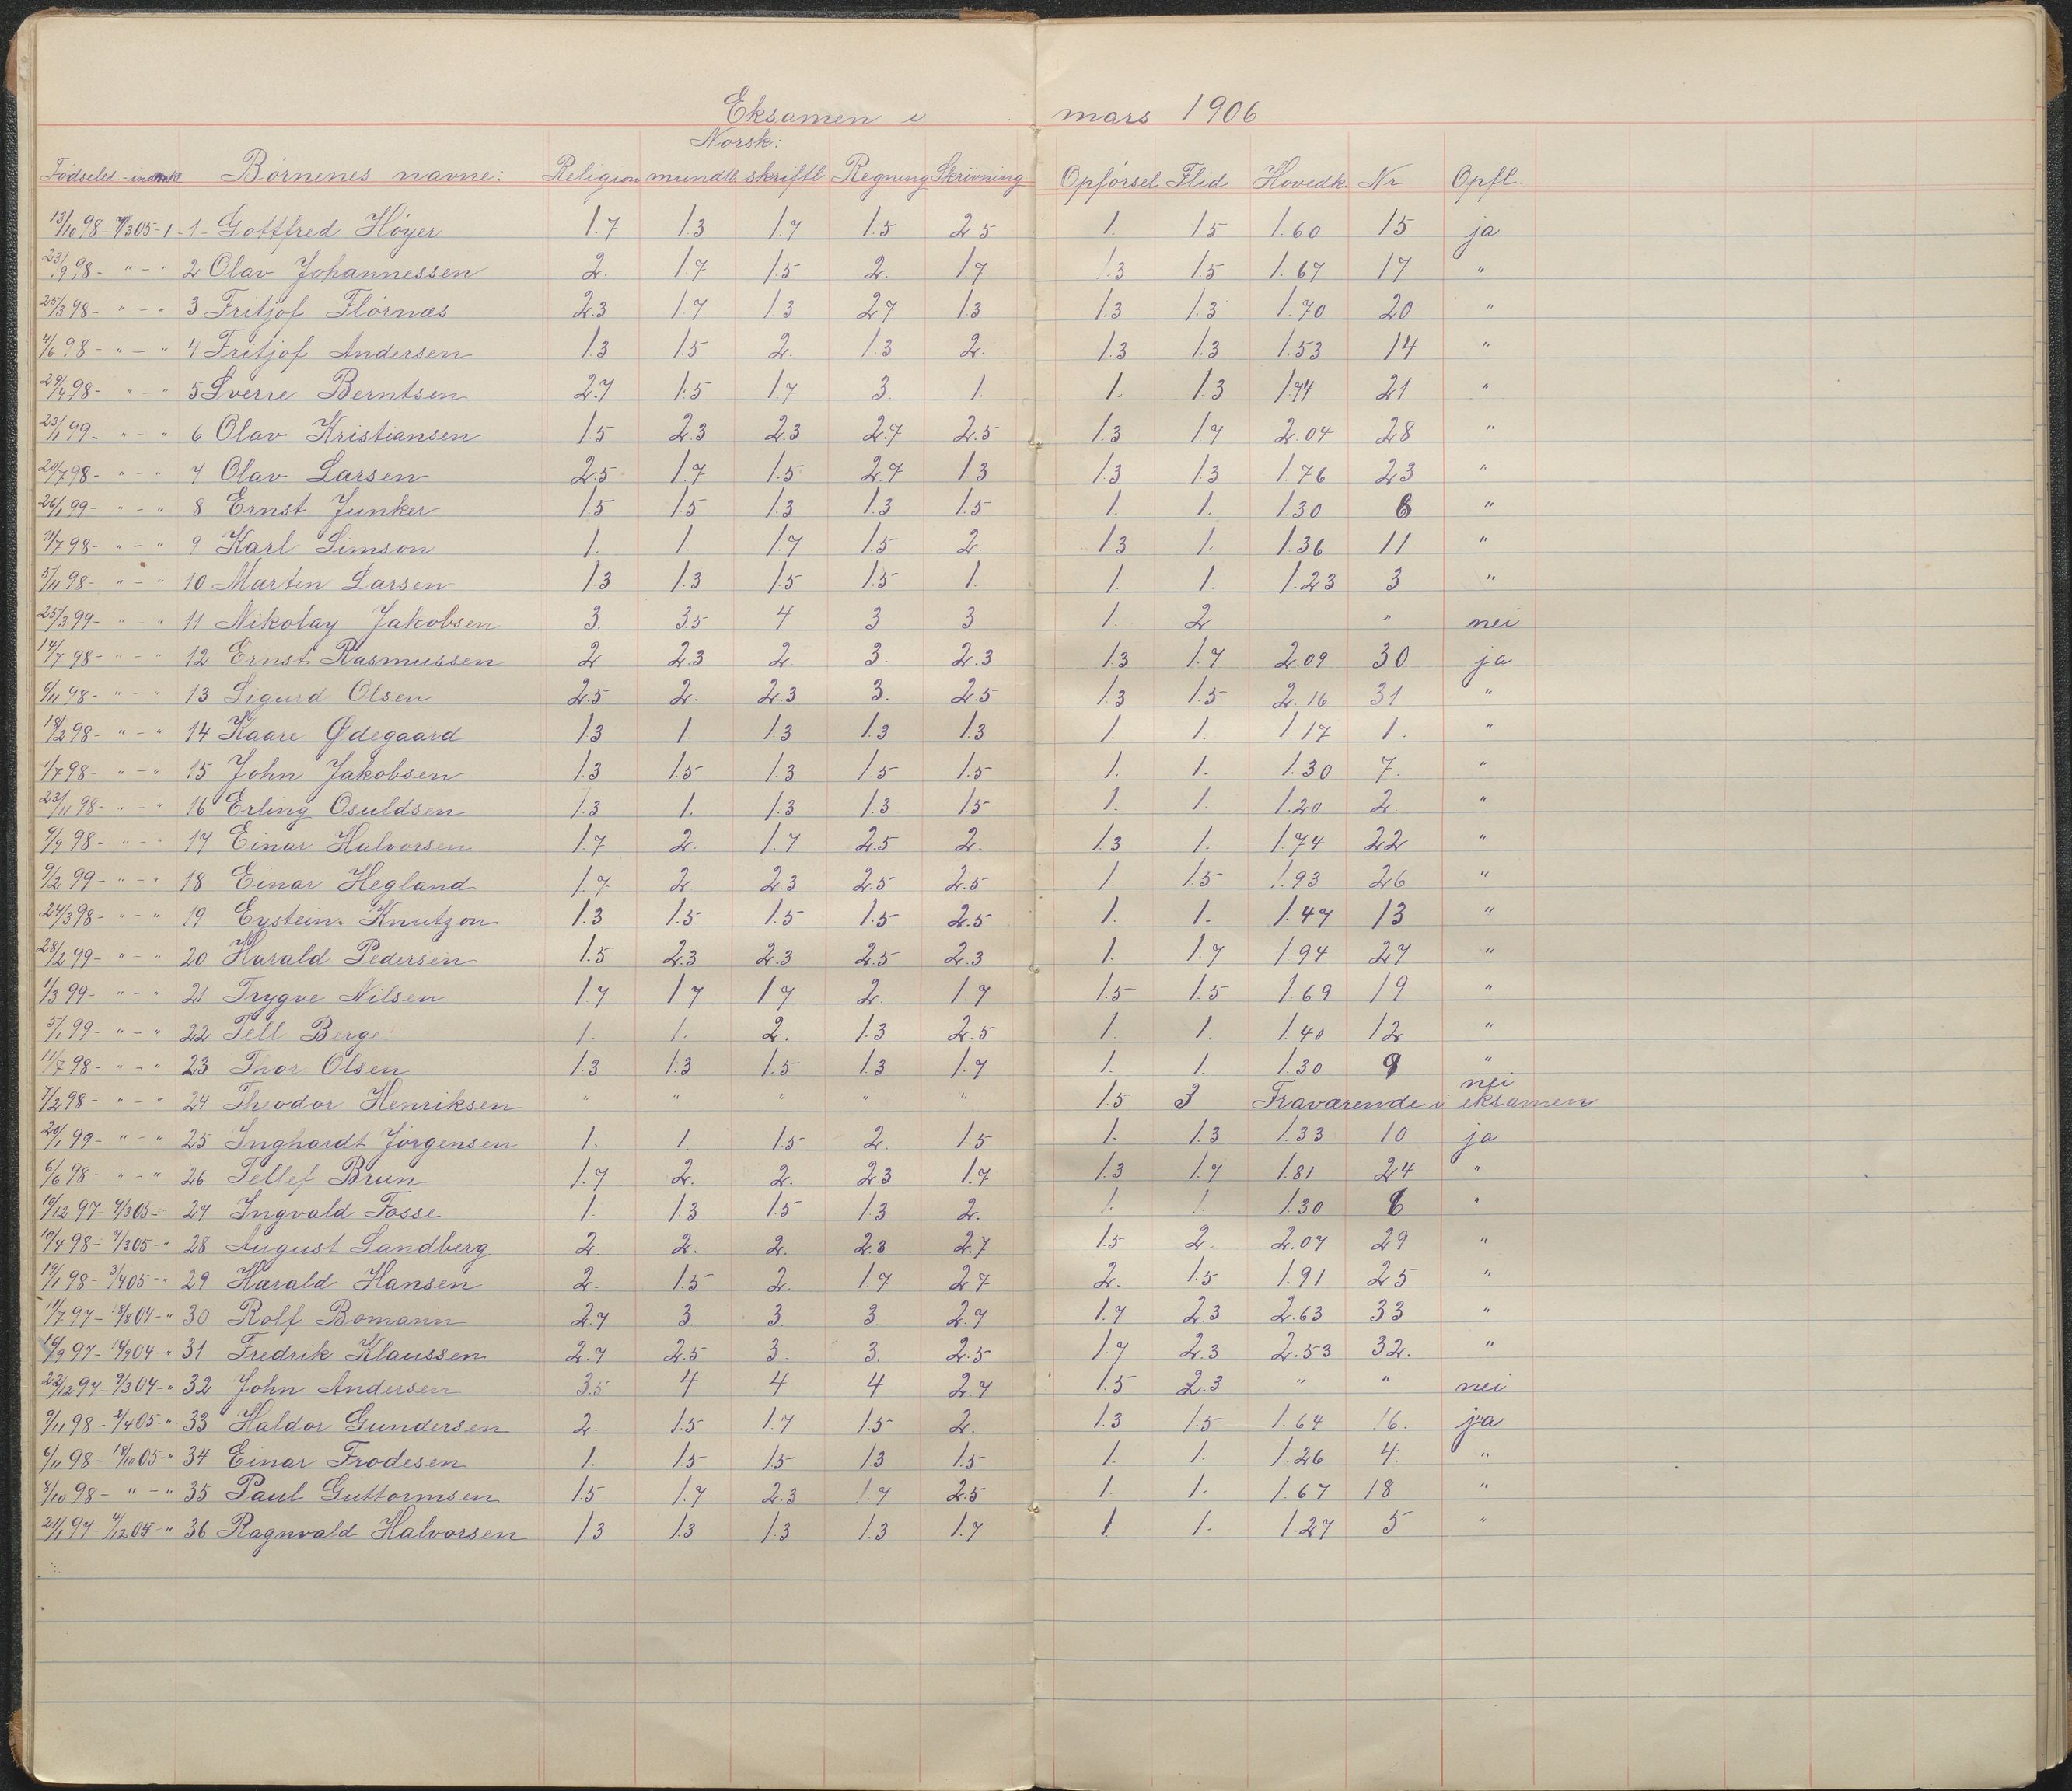 Eksamen i mars 1906
Norsk:
Fødseled - indmk Børnenes navne: Religion mundtl. skriftl Regning Skrivning Opførsel Flid Hovedk Nr Opfl.
13/10 98 - 7/3 05 - 1 - 1 - Gottfred Höyer 1.7 1.3 1.7 1.5 2.5 1. 1.5 1.60 15 ja
23/9 98 - " - " 2 Olav Johannessen 2. 1.7 1.5 2. 1.7 1.3 1.5 1.67 17 "
25/3 98 - " - " 3 Fritjof Flørnæs 2.3 1.7 1.3 2.7 1.3 1.3 1.3 1.70 20 "
4/6 98 - " - " 4 Fritjof Andersen 1.3 1.5 2. 1.3 2. 1.3 1.3 1.53 14 "
29/4 98 - " - " 5 Sverre Berntsen 2.7 1.5 1.7 3. 1. 1. 1.3 1.74 21 "
23/1 99 - " - " 6 Olav Kristiansen 1.5 2.3 2.3 2.7 2.5 1.3 1.7 2.04 28 "
20/7 98 - " - " 7 Olav Larsen 2.5 1.7 1.5 2.7 1.3 1.3 1.3 1.76 23 "
26/1 99 - " - " 8 Ernst Junker 1.5 1.5 1.3 1.3 1.5 1. 1. 1.30 6 "
11/7 98 - " - " 9 Karl Simson 1. 1. 1.7 1.5 2. 1.3 1. 1.36 11 "
5/11 98 - " - " 10 Martin Larsen 1.3 1.3 1.5 1.5 1. 1. 1. 1.23 3 "
25/3 99 - " - " 11 Nikolay Jakobsen 3. 3.5 4 3 3 1. 2 " nei
14/7 98 - " - " 12 Ernst Rasmussen 2 2.3 2. 3. 2.3 1.3 1.7 2.09 30 ja
6/11 98 - " - " 13 Sigurd Olsen 2.5 2. 2.3 3. 2.5 1.3 1.5 2.16 31 "
18/2 98 - " - " 14 Kaare Ødegaard 1.3 1. 1.3 1.3 1.3 1. 1. 1.17 1. "
1/7 98 - " - " 15 John Jakobsen 1.3 1.5 1.3 1.5 1.5 1. 1. 1.30 7. "
23/11 98 - " - " 16 Erling Osuldsen 1.3 1. 1.3 1.3 1.5 1. 1. 1.20 2. "
9/9 98 - " - " 17 Einar Halvorsen 1.7 2. 1.7 2.5 2. 1.3 1. 1.74 22 "
9/2 99 - " - " 18 Einar Hegland 1.7 2. 2.3 2.5 2.5 1. 1.5 1.93 26 "
24/3 98 - " - " 19 Eystein Knutzon 1.3 1.5 1.5 1.5 2.5 1. 1. 1.47 13 "
28/2 99 - " - " 20 Harald Pedersen 1.5 2.3 2.3 2.5 2.3 1. 1.7 1.94 27 "
1/3 99 - " - " 21 Trygve Nilsen 1.7 1.7 1.7 2. 1.7 1.5 1.5 1.69 19 "
5/1 99 - " - " 22 Tell Berge 1. 1. 2. 1.3 2.5 1. 1. 1.40 12 "
11/7 98 - " - " 23 Thor Olsen 1.3 1.3 1.5 1.3 1.7 1. 1. 1.30 9 "
7/2 98 - " - " 24 Theodor Henriksen " " " " " 1.5 3 Fraværende i eksamen nei
20/1 99 - " - " 25 Inghardt Jørgensen 1. 1 1.5 2. 1.5 1. 1.3 1.33 10 ja
6/6 98 - " - " 26 Tellef Brun 1.7 2. 2. 2.3 1.7 1.3 1.7 1.81 24 "
10/12 97 - 7/3 05 - " 27 Ingvald Fosse 1. 1.3 1.5 1.3 2. 1. 1. 1.30 8 "
10/4 98 - 7/3 05 - " 28 August Sandberg 2 2. 2. 2.3 2.7 1.5 2. 2.07 29 "
19/1 98 - 3/4 05 - " 29 Harald Hansen 2. 1.5 2. 1.7 2.7 2. 1.5 1.91 25 "
11/7 97 - 18/8 04 - " 30 Rolf Bomann 2.7 3. 3. 3. 2.7 1.7 2.3 2.63 33 "
16/9 97 - 14/9 04 - " 31 Fredrik Klaussen 2.7 2.5 3. 3. 2.5 1.7 2.3 2.53 32. "
22/12 97 - 9/3 04 - " 32 John Andersen 3.5 4 4 4 2.7 1.5 2.3 " " nei
9/11 98 - 2/4 05 - " 33 Haldor Gundersen 2. 1.5 1.7 1.5 2. 1.3 1.5 1.64 16. ja
6/11 98 - 18/10 05 - " 34 Einar Frodesen 1. 1.5 1.5 1.3 1.5 1. 1. 1.26 4. "
8/10 98 - " - " 35 Paul Guttormsen 1.5 1.7 2.3 1.7 2.5 1. 1. 1.67 18 "
21/1 97 - 4/12 05 - " 36 Ragnvald Halvorsen 1.3 1.3 1.3 1.3 1.7 1. 1. 1.27 5 "